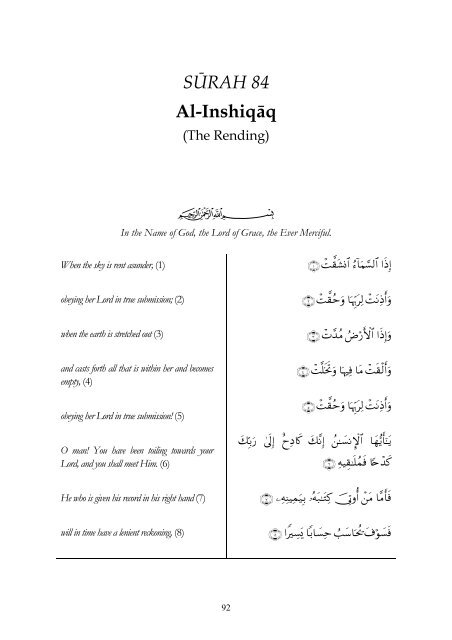 SŪRAH 84
Al-Inshiqāq
(The Rending)
بِسْمِ ٱللَّهِ ٱلرَّحْمَٰنِ ٱلرَّحِيمِ
In the Name of God, the Lord of Grace, the Ever Merciful.
When the sky is rent asunder, (1)
إِذَا ٱلسَّمَآءُ ٱنشَقَّتْ ۝١
obeying her Lord in true submission; (2)
وَأَذِنَتْ لِرَبِّهَا وَحُقَّتْ ۝٢
when the earth is stretched out (3)
وَإِذَا ٱلْأَرْضُ مُدَّتْ ۝٣
and casts forth all that is within her and becomes
empty, (4)
وَأَلْقَتْ مَا فِيهَا وَتَخَلَّتْ ۝٤
obeying her Lord in true submission! (5)
وَأَذِنَتْ لِرَبِّهَا وَحُقَّتْ ۝٥
O man! You have been toiling towards your
Lord, and you shall meet Him. (6)
يَٰٓأَيُّهَا ٱلْإِنسَٰنُ إِنَّكَ كَادِحٌ إِلَىٰ رَبِّكَ
كَدْحًا فَمُلَٰقِيهِ ۝٦
He who is given his record in his right hand (7)
فَأَمَّا مَنْ أُوتِىَ كِتَٰبَهُۥ بِيَمِينِهِۦ ۝٧
will in time have a lenient reckoning, (8)
فَسَوْفَ يُحَاسَبُ حِسَابًا يَسِيرًا ۝٨
92